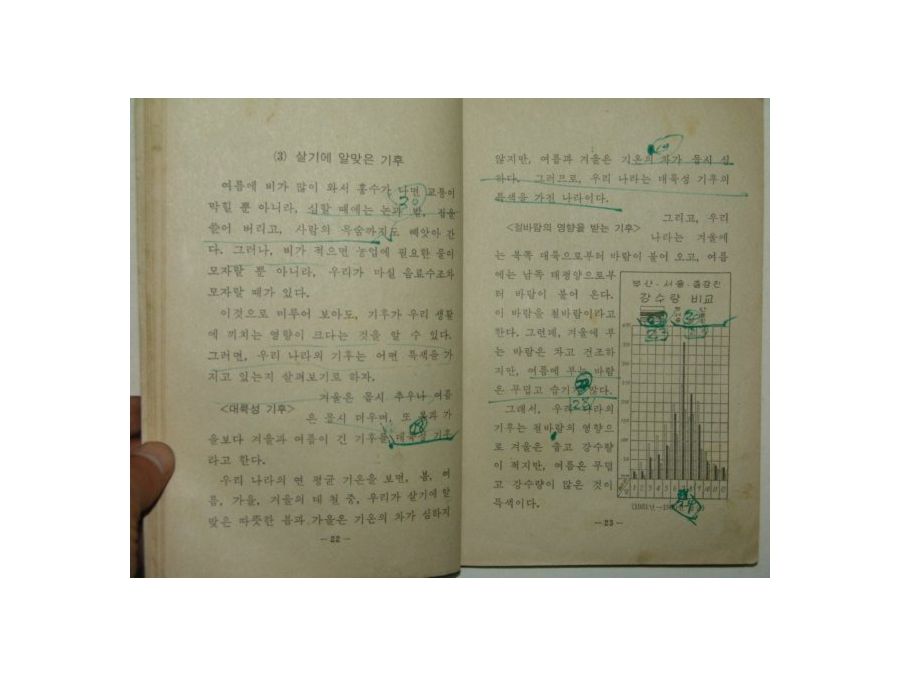 (3) 살기에 알맞은 기후
여름에 비가 많이 와서 홍수가 나면 교통이
막힐 뿐 아니라, 심할 때에는 논과 밭, 집을
쓸어 버리고, 사람의 목숨까지도 빼앗아 간
다. 그러나, 비가 적으면 농업에 필요한 물이
모자랄 뿐 아니라, 우리가 마실 음료수조차
모자랄 때가 있다.
이것으로 미루어 보아도, 기후가 우리 생활
에 끼치는 영향이 크다는 것을 알 수 있다.
그러면, 우리 나라의 기후는 어떤 특색을 가
지고 있는지 살펴보기로 하자.
<대륙성 기후>
겨울은 몹시 추우나 여름
은 몹시 더우며, 또 봄과 가
을보다 겨울과 여름이 긴 기후를 대륙성 기후
라고 한다.
우리 나라의 연 평균 기온을 보면, 봄, 여
름, 가을, 겨울의 네 철 중, 우리가 살기에 알
맞은 따뜻한 봄과 가을은 기온의 차가 심하지
-22-
않지만, 여름과 겨울은 기온의 차가 몹시 심
하다. 그러므로, 우리 나라는 대륙성 기후의
특색을 가진 나라이다.
<철바람의 영향을 받는 기후>
그리고, 우리
나라는 겨울에
는 북쪽 대륙으로부터 바람이 불어 오고, 여름
에는 남쪽 태평양으로부
터 바람이 불어 온다.
이 바람을 철바람이라고
한다. 그런데, 겨울에 부
는 바람은 차고 건조하
지만, 여름에 부는 바람
은 무덥고 습기가 많다.
그래서, 우리 나라의
기후는 철바람의 영향으
로 겨울은 춥고 강수량
이 적지만, 여름은 무덥
고 강수량이 많은 것이
특색이다.
부산·서울·중강진
강수량 비교
1 2 3 4 5 6 7 8 9 10 11 12
-23-